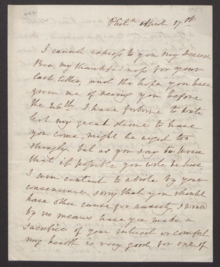 Phila April 17th
I cannot express to you my Dearest
Ben my thankfulness for your
last letter, and the hope you have
given me of seeing you before
the 20th. I have forborne to write
lest my great desire to have
you come might be urged too
strongly but as you say to
that if possible you will be here
I am content to abide by your
convenience, sorry that you should
have other cause for anxiety. I would
by no means have you make a
sacrifice of your interest or comfort
my health is very good, for one of